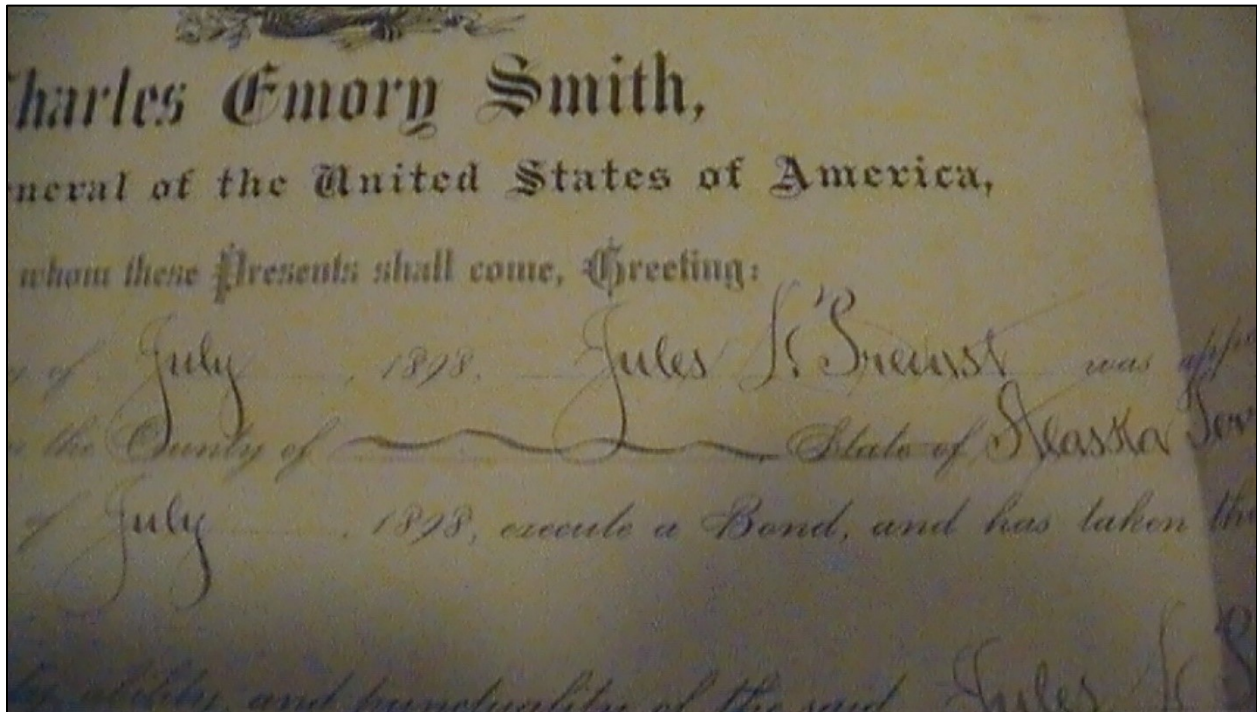 harles Emory Smith,
neral of the United States of America,
whom these Presents shall come, Greeting:
of July , 1898, Jules was app
the County of State of Alaska Ter
of July , 1898, execute a Bond, and has taken th
ability, and punctuality of the said Jules